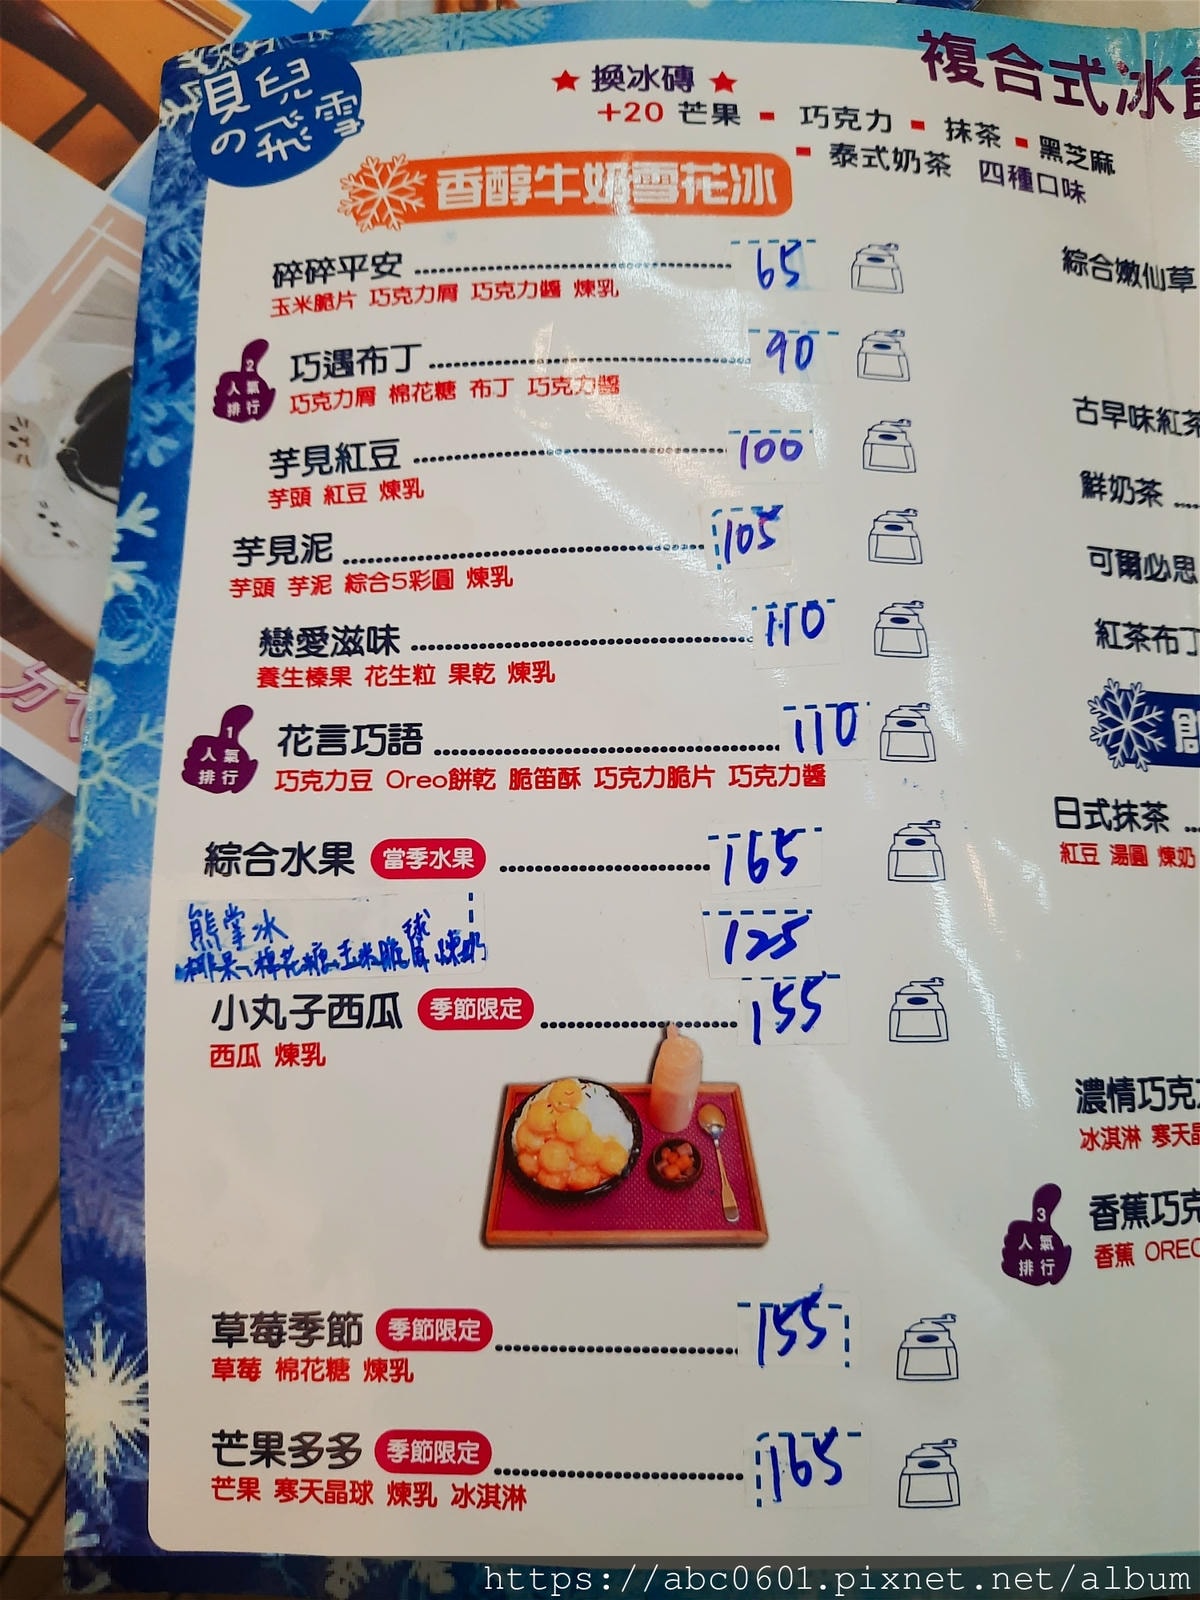 貝兒
の飛雪
複合式冰
★ 換冰磚 ★
+20 芒果 - 巧克力 - 抹茶 - 黑芝麻
- 泰式奶茶 四種口味
香醇牛奶雪花冰
碎碎平安 65
玉米脆片 巧克力屑 巧克力醬 煉乳
2 人氣排行
巧遇布丁 90
巧克力屑 棉花糖 布丁 巧克力醬
芋見紅豆 100
芋頭 紅豆 煉乳
芋見泥 105
芋頭 芋泥 綜合5彩圓 煉乳
戀愛滋味 110
養生榛果 花生粒 果乾 煉乳
1 人氣排行
花言巧語 110
巧克力豆 Oreo餅乾 脆笛酥 巧克力脆片 巧克力醬
綜合水果 當季水果 165
熊掌冰 125
椰果、棉花糖、玉米脆球 煉奶
小丸子西瓜 季節限定 155
西瓜 煉乳
草莓季節 季節限定 155
草莓 棉花糖 煉乳
芒果多多 季節限定 165
芒果 寒天晶球 煉乳 冰淇淋
綜合嫩仙草
古早味紅茶
鮮奶茶
可爾必思
紅茶布丁
日式抹茶
紅豆 湯圓 煉奶
濃情巧克
冰淇淋 寒天晶
3 人氣排行
香蕉巧克
香蕉 OREO
https://abc0601.pixnet.net/album